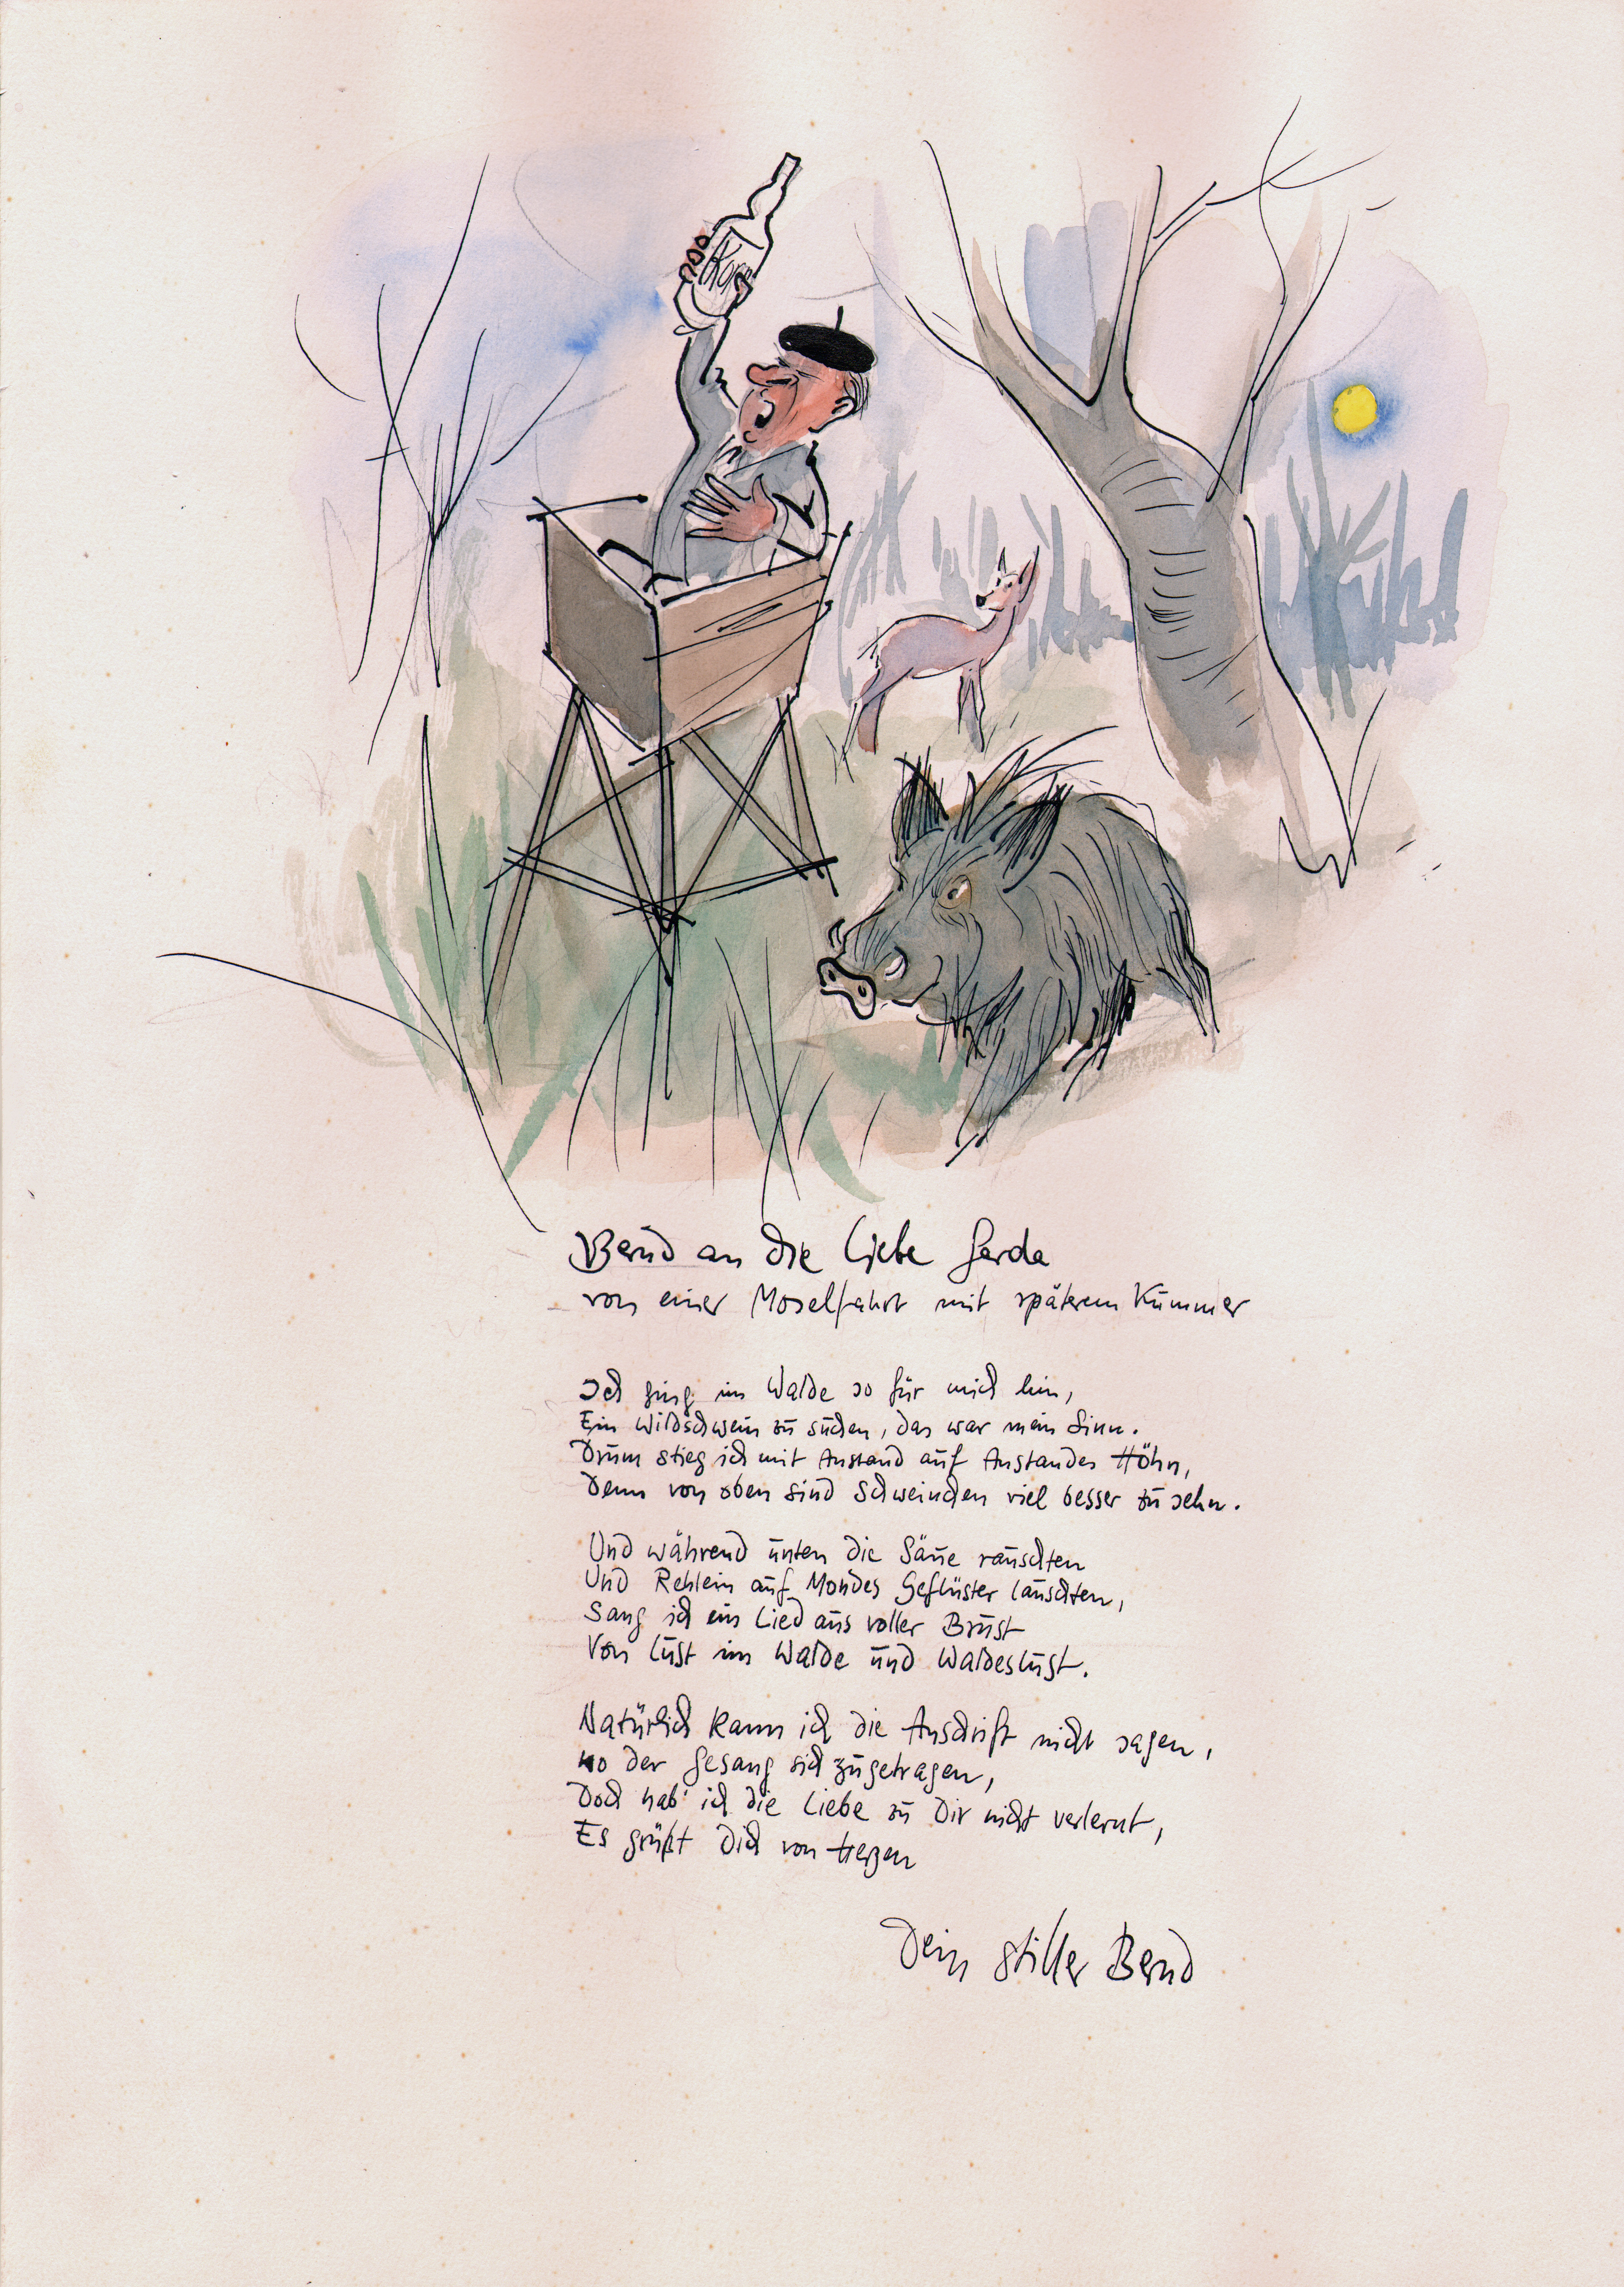 Korn
Bernd an die liebe Gerda
von einer Moselfahrt mit späterem Kummer
Ich ging im Walde so für mich hin,
Ein Wildschwein zu suchen, das war mein Sinn.
Drum stieg ich mit Anstand auf Anstandes Höhn,
Denn von oben sind Schweinchen viel besser zu sehn.
Und während unten die Säue rauschten
Und Rehlein auf Mondes Geflüster lauschten,
Sang ich ein Lied aus voller Brust
Von Lust im Walde und Waldeslust.
Natürlich kann ich die Anschrift nicht sagen,
wo der Gesang sich zugetragen,
Doch hab' ich die Liebe zu Dir nicht verlernt,
Es grüßt Dich von Herzen
Dein stiller Bernd